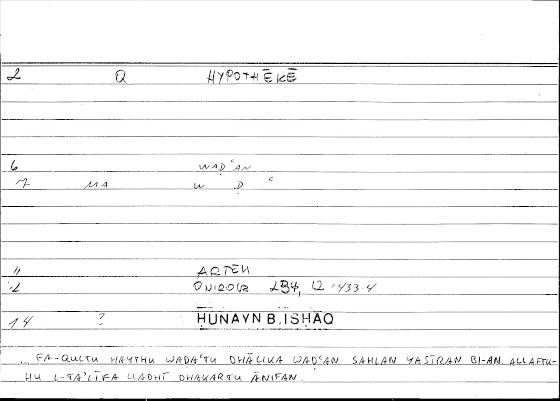 2 Q HYPOTHĒKĒ
6 WAḌʿAN
7 MA W Ḍ ʿ
11 ARTEM
12 ONIROCR 234, 12 = 433.4
14 ? ḤUNAYN B. ISḤĀQ
FA-QULTU ḤAYTHU WAḌAʿTU DHĀLIKA WAḌʿAN SAHLAN YASĪRAN BI-AN ALLAFTU-
HU L-TAʾLĪFA LLADHĪ DHAKARTU ĀNIFAN.